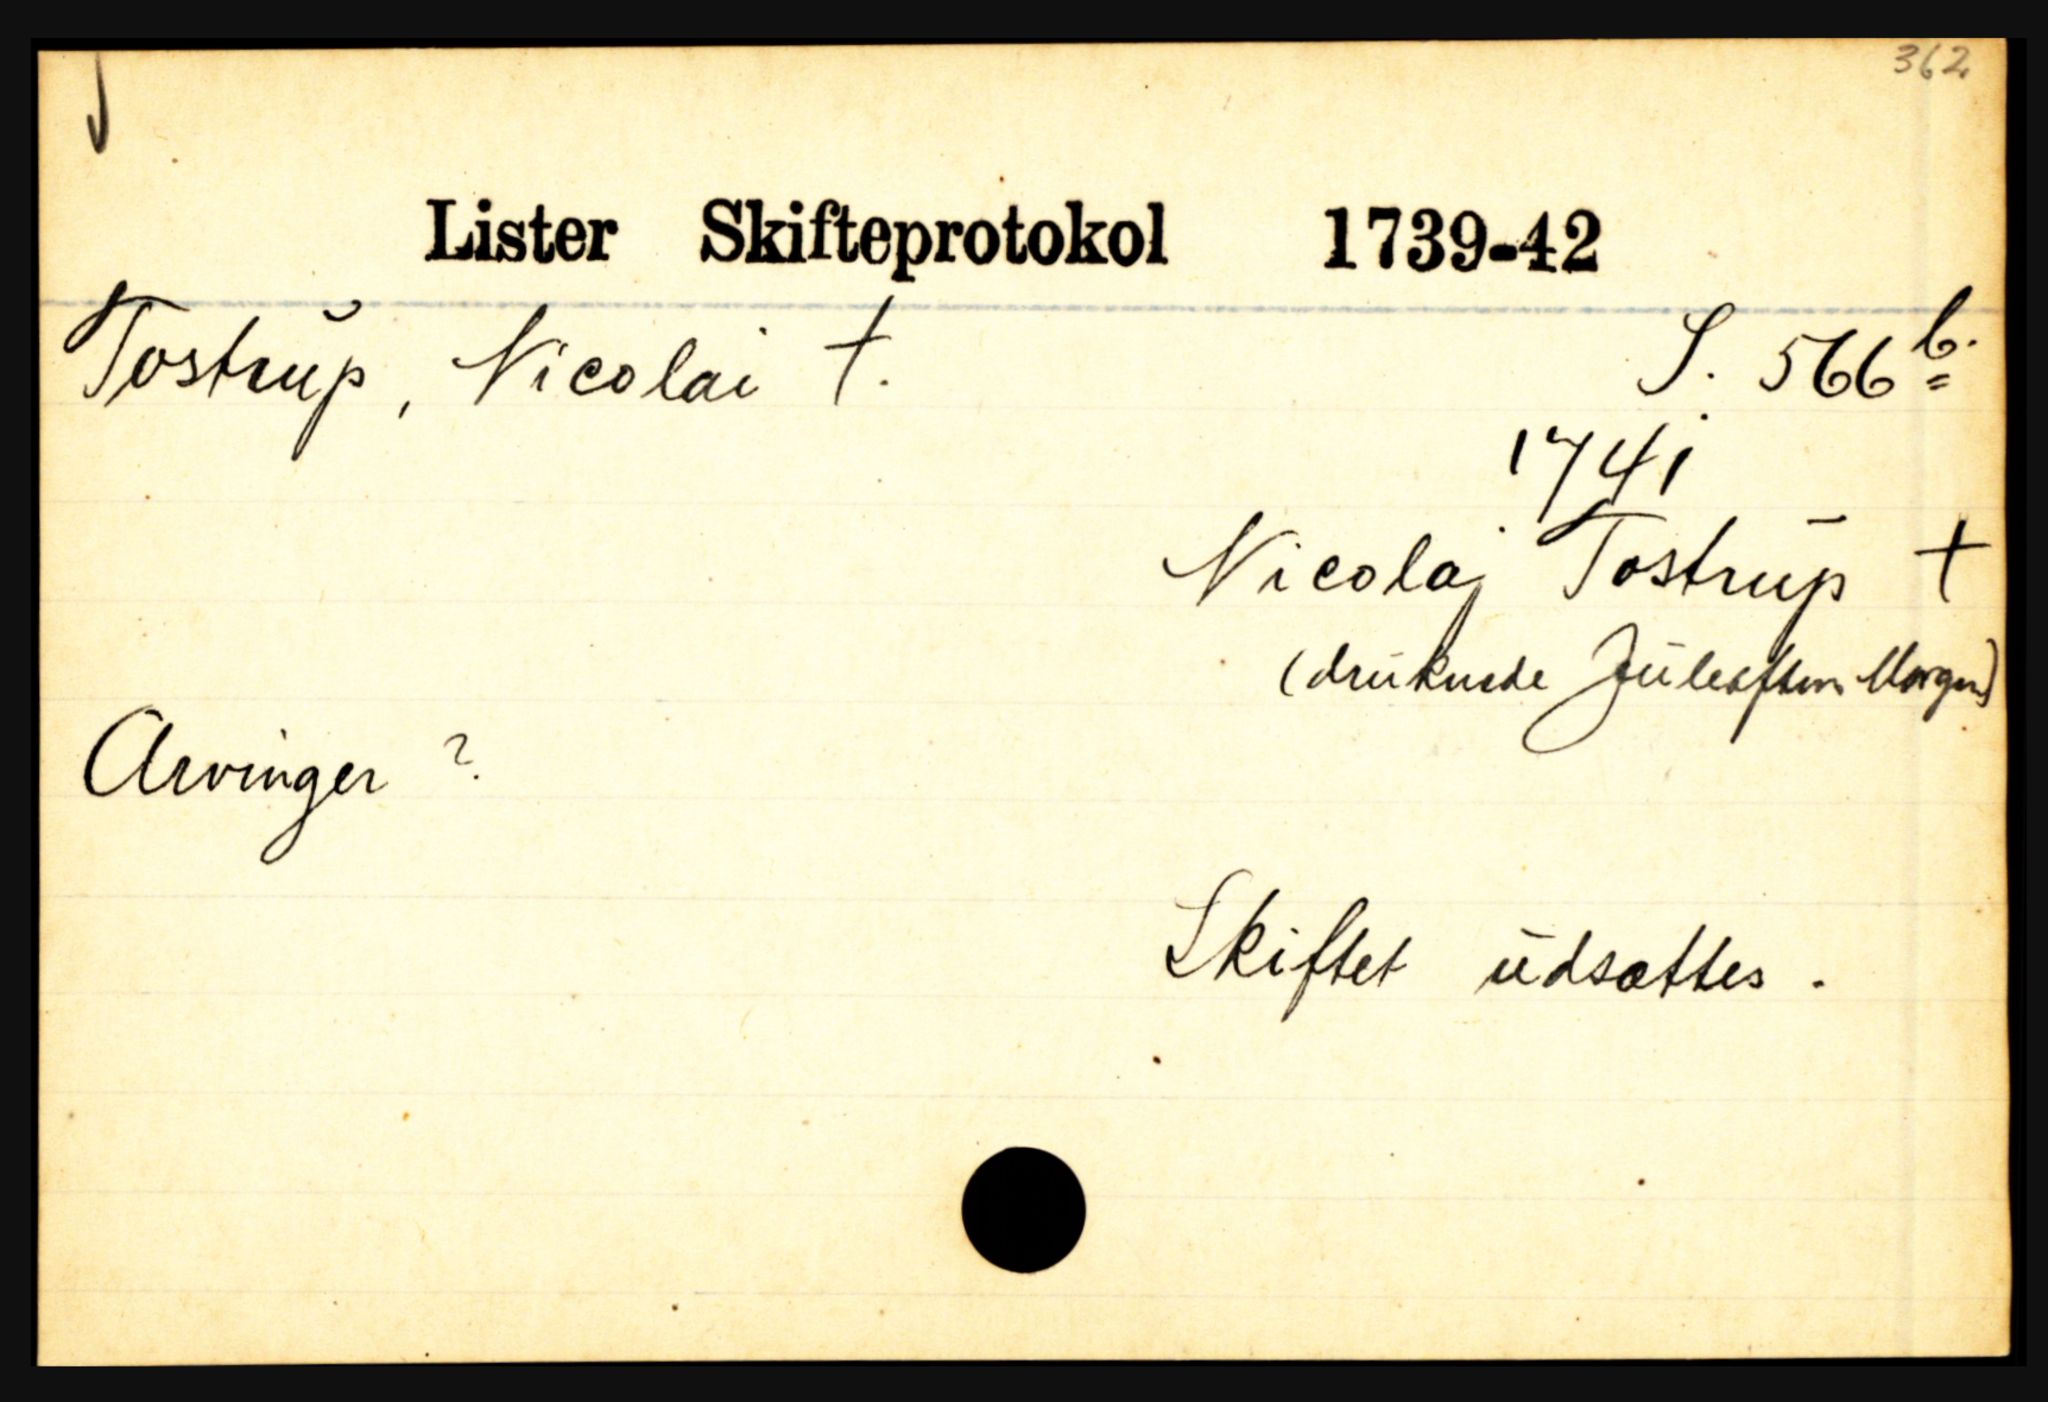 362
Lister Skifteprotokol 1739-42
Tostrup, Nicolai †. S. 566 b.
1741
Nicolaj Tostrup †
(druknede Juleaften Morgen)
Arvinger ?
Skiftet udsættes.